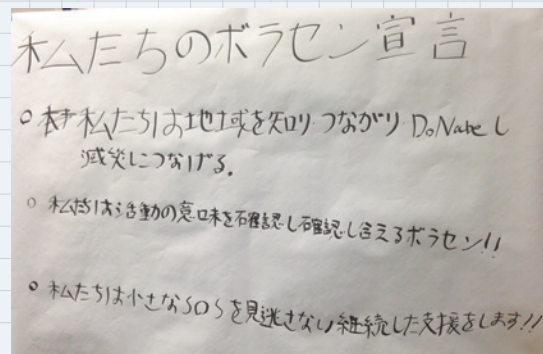 私たちのボラセン宣言
○ 私たちは地域を知り つながり DoNabe し
減災につなげる。
○ 私たちは活動の意味を確認し確認し合えるボラセン!!
○ 私たちは小さなSOSを見逃さない継続した支援をします!!